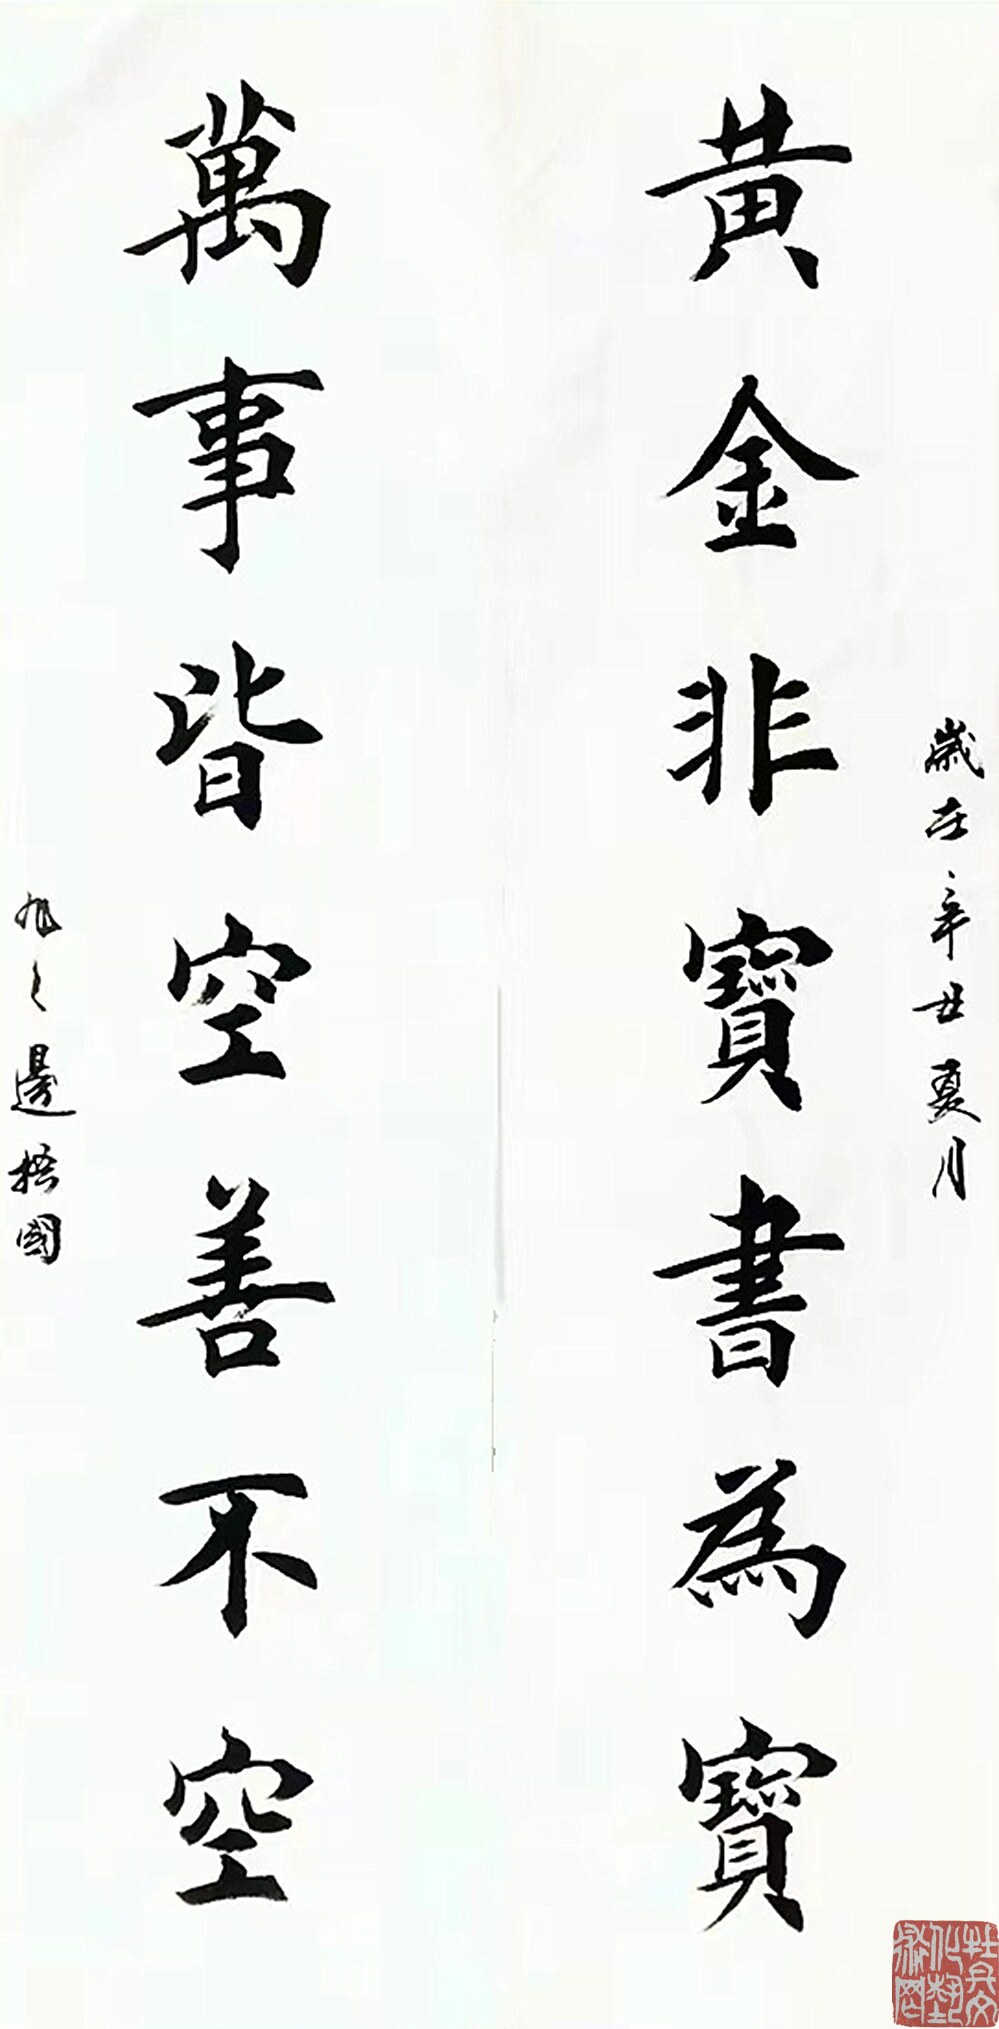 歲在辛丑夏月
黃金非寶書為寶
萬事皆空善不空
旭之邊梧國